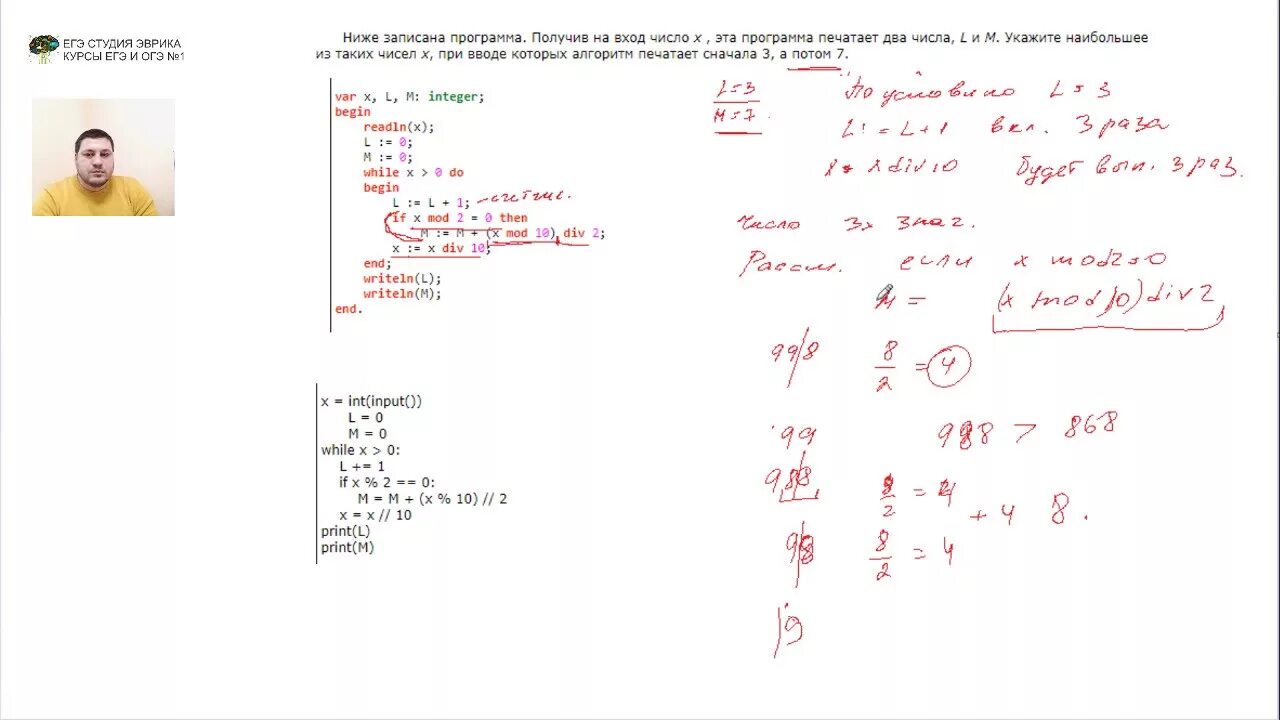 ЕГЭ СТУДИЯ ЭВРИКА
КУРСЫ ЕГЭ И ОГЭ №1
Ниже записана программа. Получив на вход число x , эта программа печатает два числа, L и M. Укажите наибольшее
из таких чисел x, при вводе которых алгоритм печатает сначала 3, а потом 7.
var x, L, M: integer;
begin
readln(x);
L := 0;
M := 0;
while x > 0 do
begin
L := L + 1; счетчик.
if x mod 2 = 0 then
M := M + (x mod 10) div 2;
x := x div 10;
end;
writeln(L);
writeln(M);
end.
x = int(input())
L = 0
M = 0
while x > 0:
L += 1
if x % 2 == 0:
M = M + (x % 10) // 2
x = x // 10
print(L)
print(M)
L=3
M=7.
По условию L = 3
L := L + 1 вкл. 3 раза
x div 10 будет вып. 3 раз.
Число 3х знач.
Рассм. если x mod 2=0
M = (x mod 10) div 2
998 8/2 = 4
99 988 > 868
988 = 4 + 4 8.
98 8/2 = 4
9